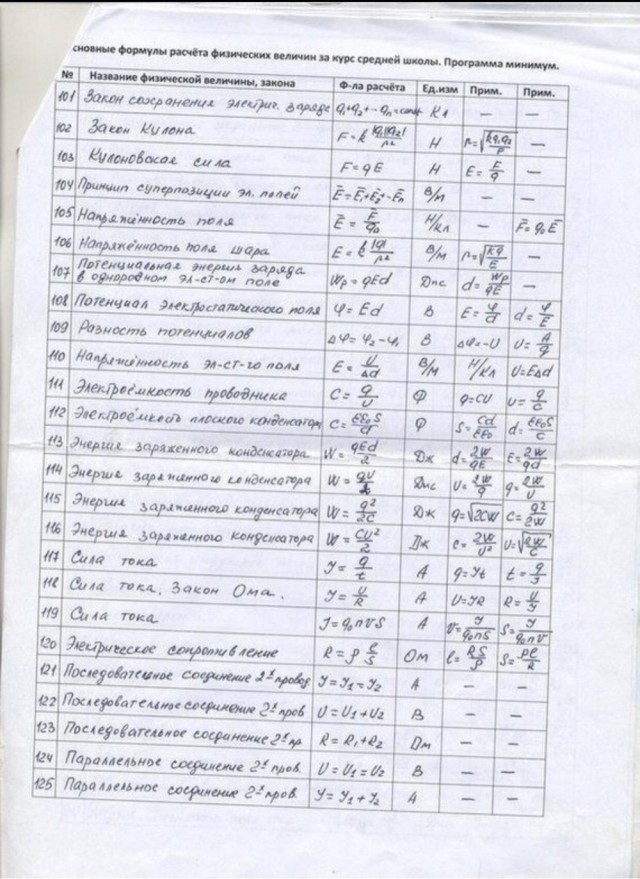 сновные формулы расчёта физических величин за курс средней школы. Программа минимум.
№ Название физической величины, закона Ф-ла расчёта Ед.изм Прим. Прим.
101 Закон сохранения электрич. заряда q₁+q₂+··qₙ=const Кл — —
102 Закон Кулона F=k |q₁||q₂|/r² Н r=√(kq₁q₂/F) —
103 Кулоновская сила F=qE Н E=F/q —
104 Принцип суперпозиции эл. полей E̅=E̅₁+E̅₂+··E̅ₙ В/м — —
105 Напряжённость поля E̅=F̅/q₀ Н/Кл — F̅=q₀E̅
106 Напряжённость поля шара E=k|q|/r² В/м r=√(kq/E) —
107 Потенциальная энергия заряда
в однородном эл-ст-ом поле Wp=qEd Дж d=Wp/qE —
108 Потенциал электростатического поля φ=Ed В E=φ/d d=φ/E
109 Разность потенциалов Δφ=φ₂-φ₁ В Δφ=-U U=A/q
110 Напряжённость эл-ст-го поля E=U/Δd В/м Н/Кл U=EΔd
111 Электроёмкость проводника C=q/U Ф q=CU U=q/C
112 Электроёмкость плоского конденсатора C=εε₀S/d Ф S=Cd/εε₀ d=εε₀S/C
113 Энергия заряженного конденсатора W=qEd/2 Дж d=2W/qE E=2W/qd
114 Энергия заряженного конденсатора W=qU/2 Дж U=2W/q q=2W/U
115 Энергия заряженного конденсатора W=q²/2C Дж q=√2CW C=q²/2W
116 Энергия заряженного конденсатора W=CU²/2 Дж C=2W/U² U=√(2W/C)
117 Сила тока J=q/t А q=Jt t=q/J
118 Сила тока. Закон Ома. J=U/R А U=JR R=U/J
119 Сила тока J=q₀nVS А V=J/q₀nS S=J/q₀nV
120 Электрическое сопротивление R=ρ ℓ/S Ом ℓ=RS/ρ S=ρℓ/R
121 Последовательное соединение 2ˣ провод J=J₁=J₂ А — —
122 Последовательное соединение 2ˣ пров U=U₁+U₂ В — —
123 Последовательное соединение 2ˣ пр. R=R₁+R₂ Ом — —
124 Параллельное соединение 2ˣ пров. U=U₁=U₂ В — —
125 Параллельное соединение 2ˣ пров. J=J₁+J₂ А — —